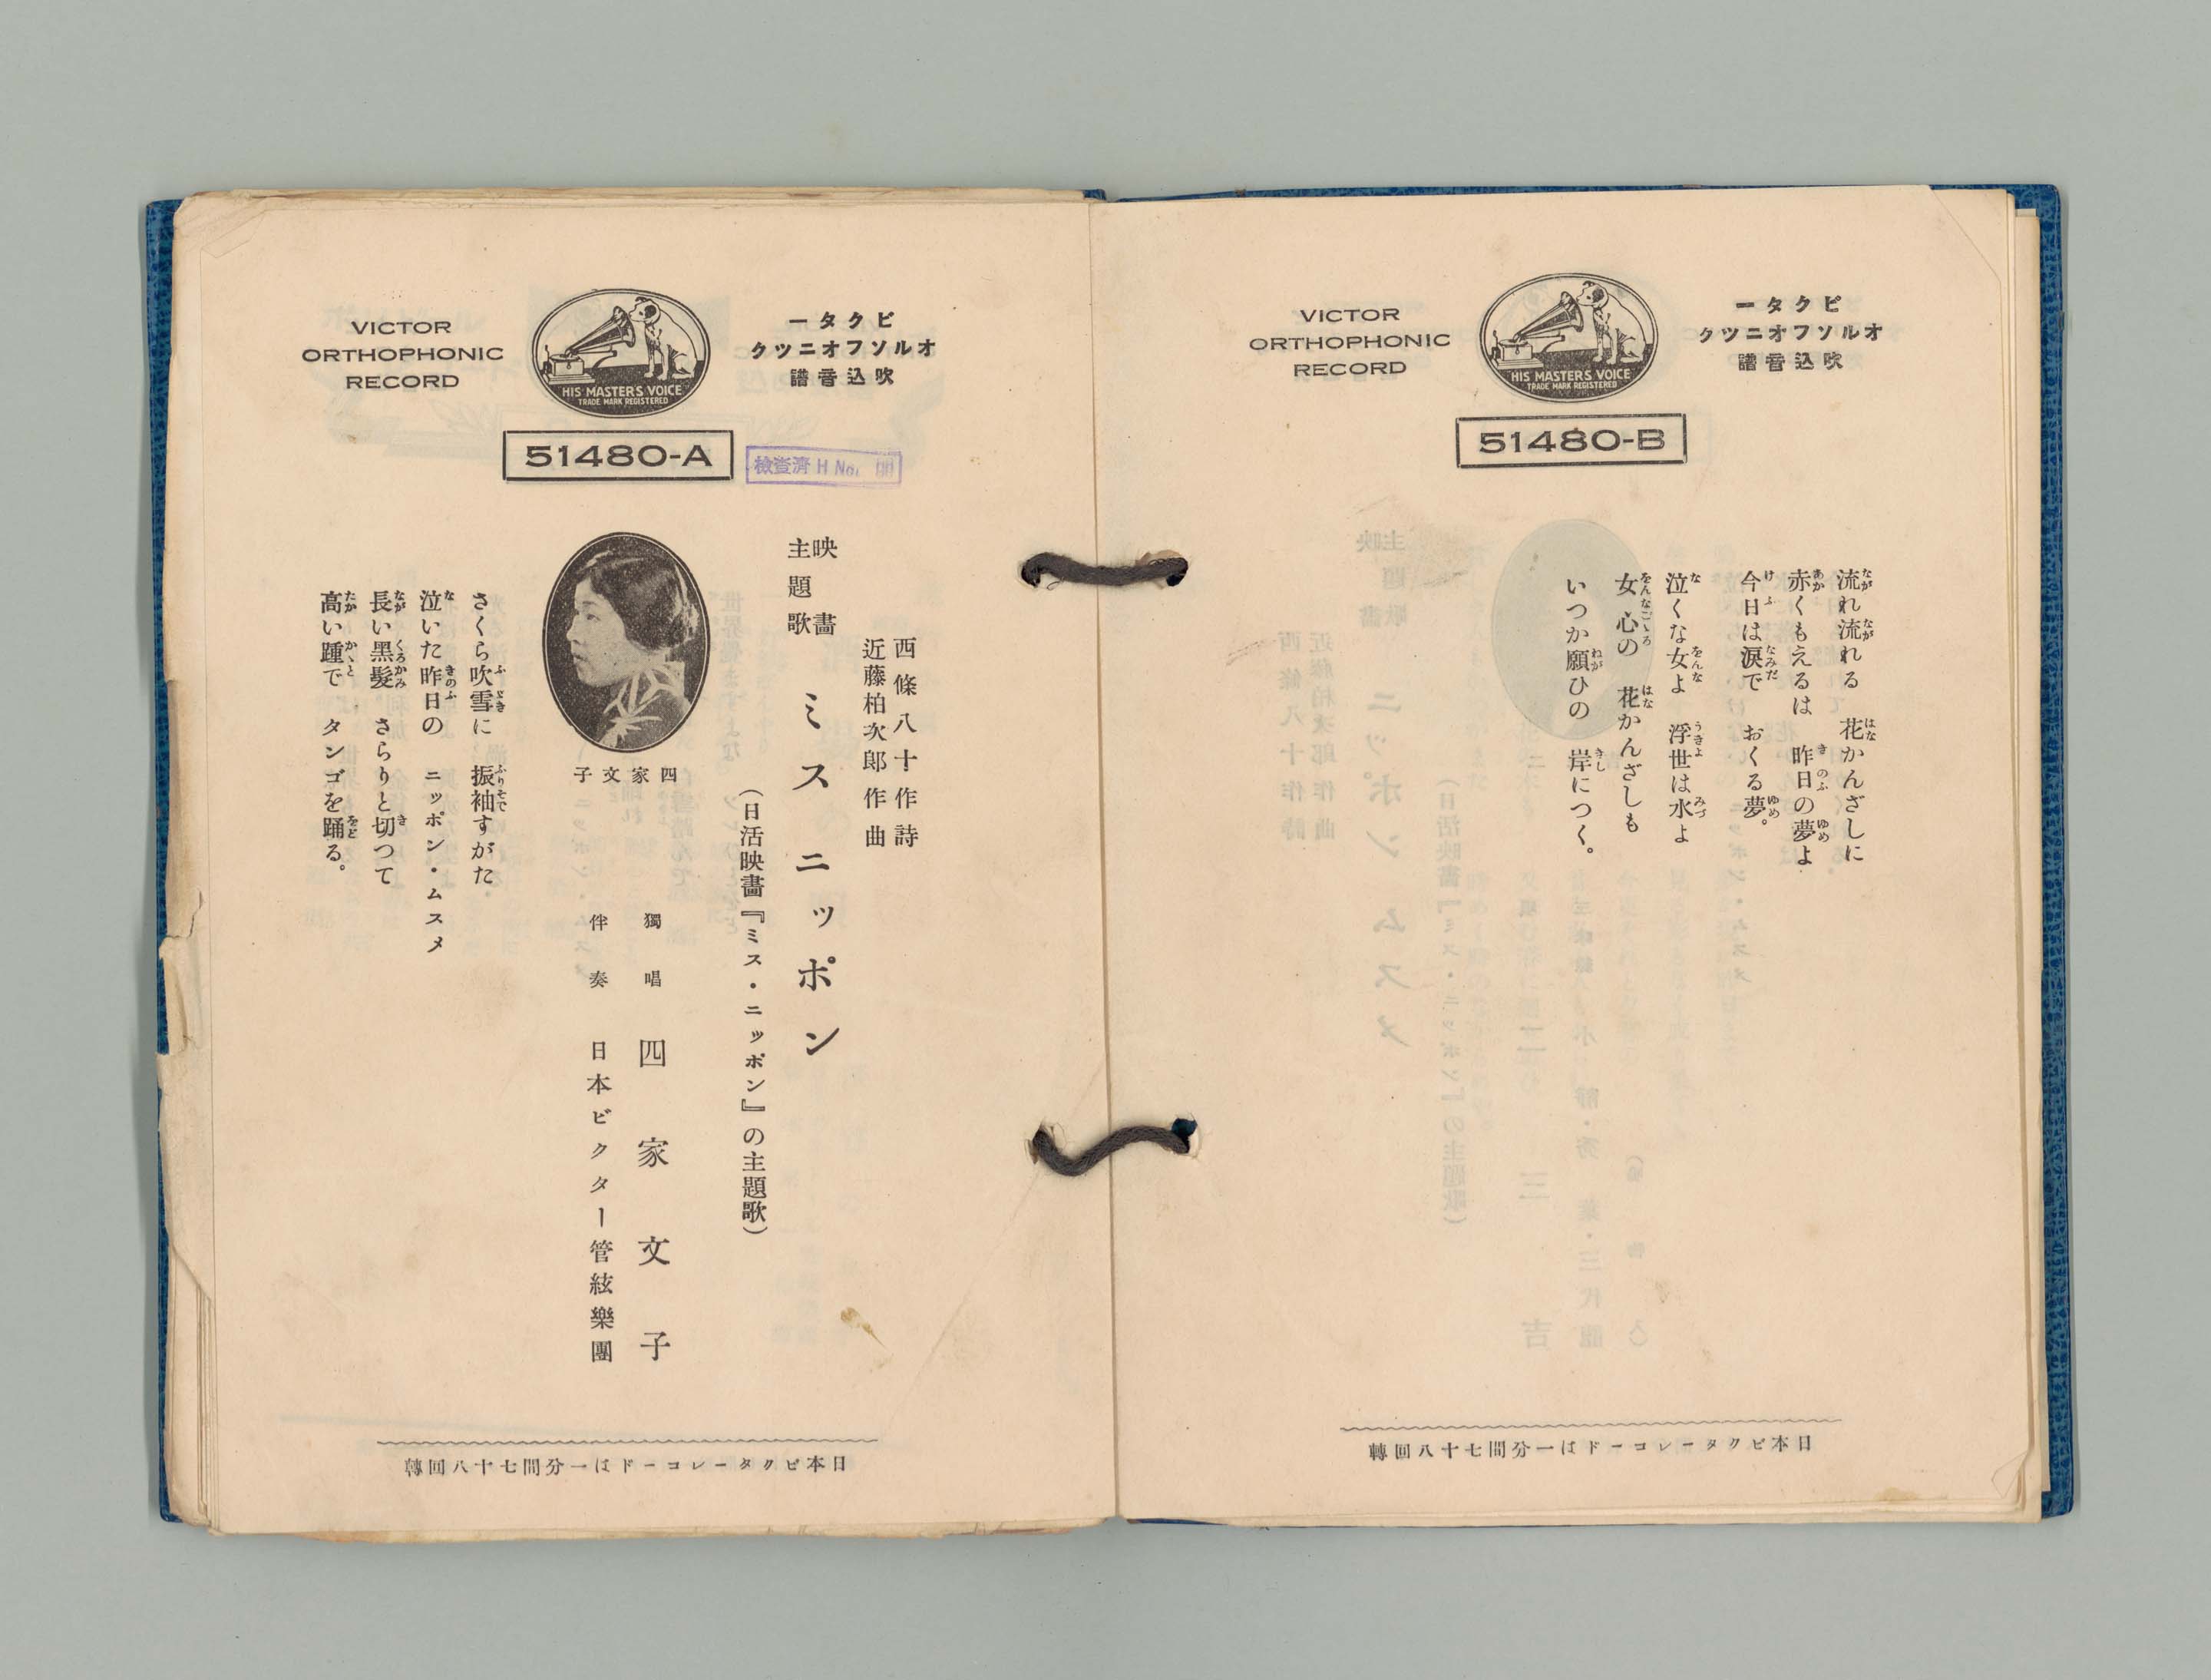 ビクター
オルソフオニツク
吹込音譜
HIS MASTER'S VOICE
TRADE MARK REGISTERED
VICTOR
ORTHOPHONIC
RECORD
51480-B
流れ流れる　花かんざしに
赤くもえるは　昨日の夢よ
今日は涙で　おくる夢。
泣くな女よ　浮世は水よ
女心の　花かんざしも
いつか願ひの　岸につく。
日本ビクターレコードは一分間七十八回轉
ビクター
オルソフオニツク
吹込音譜
HIS MASTER'S VOICE
TRADE MARK REGISTERED
VICTOR
ORTHOPHONIC
RECORD
51480-A
檢査濟 H No.
西條八十作詩
近藤柏次郎作曲
映畫
主題歌
ミス　ニッポン
（日活映畫『ミス・ニッポン』の主題歌）
四家文子
獨唱　四家文子
伴奏　日本ビクター管絃樂團
さくら吹雪に　振袖すがた
泣いた昨日の　ニッポン・ムスメ
長い黑髮　さらりと切つて
高い踵で　タンゴを踊る。
日本ビクターレコードは一分間七十八回轉